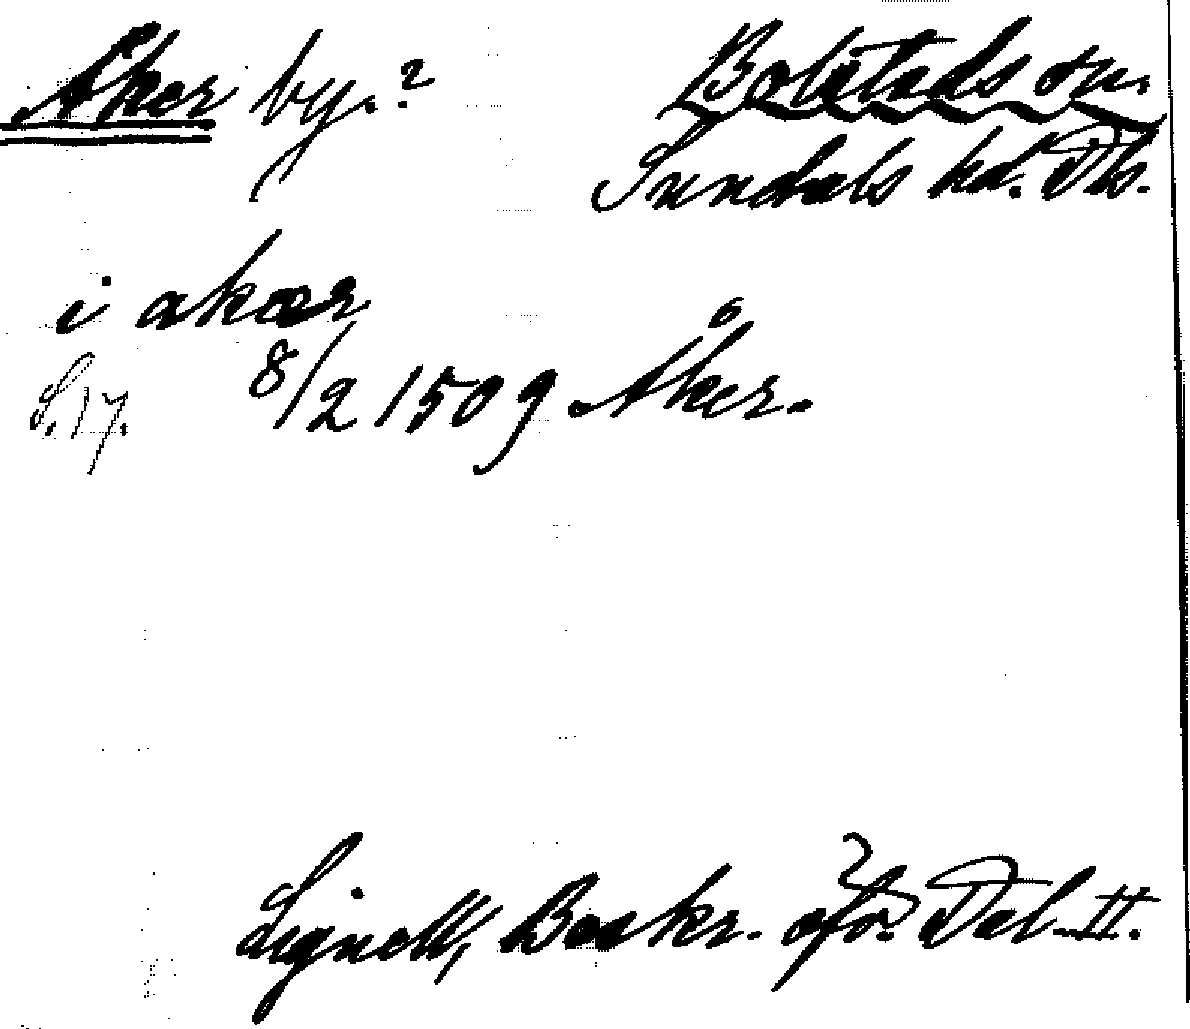 Åker by.? Bolstads sn.
Sundals hd. Dls.
i akær
S. 17. 8/2 1509 Åker.
Lignell, Beskr. öfv. Dal. II.